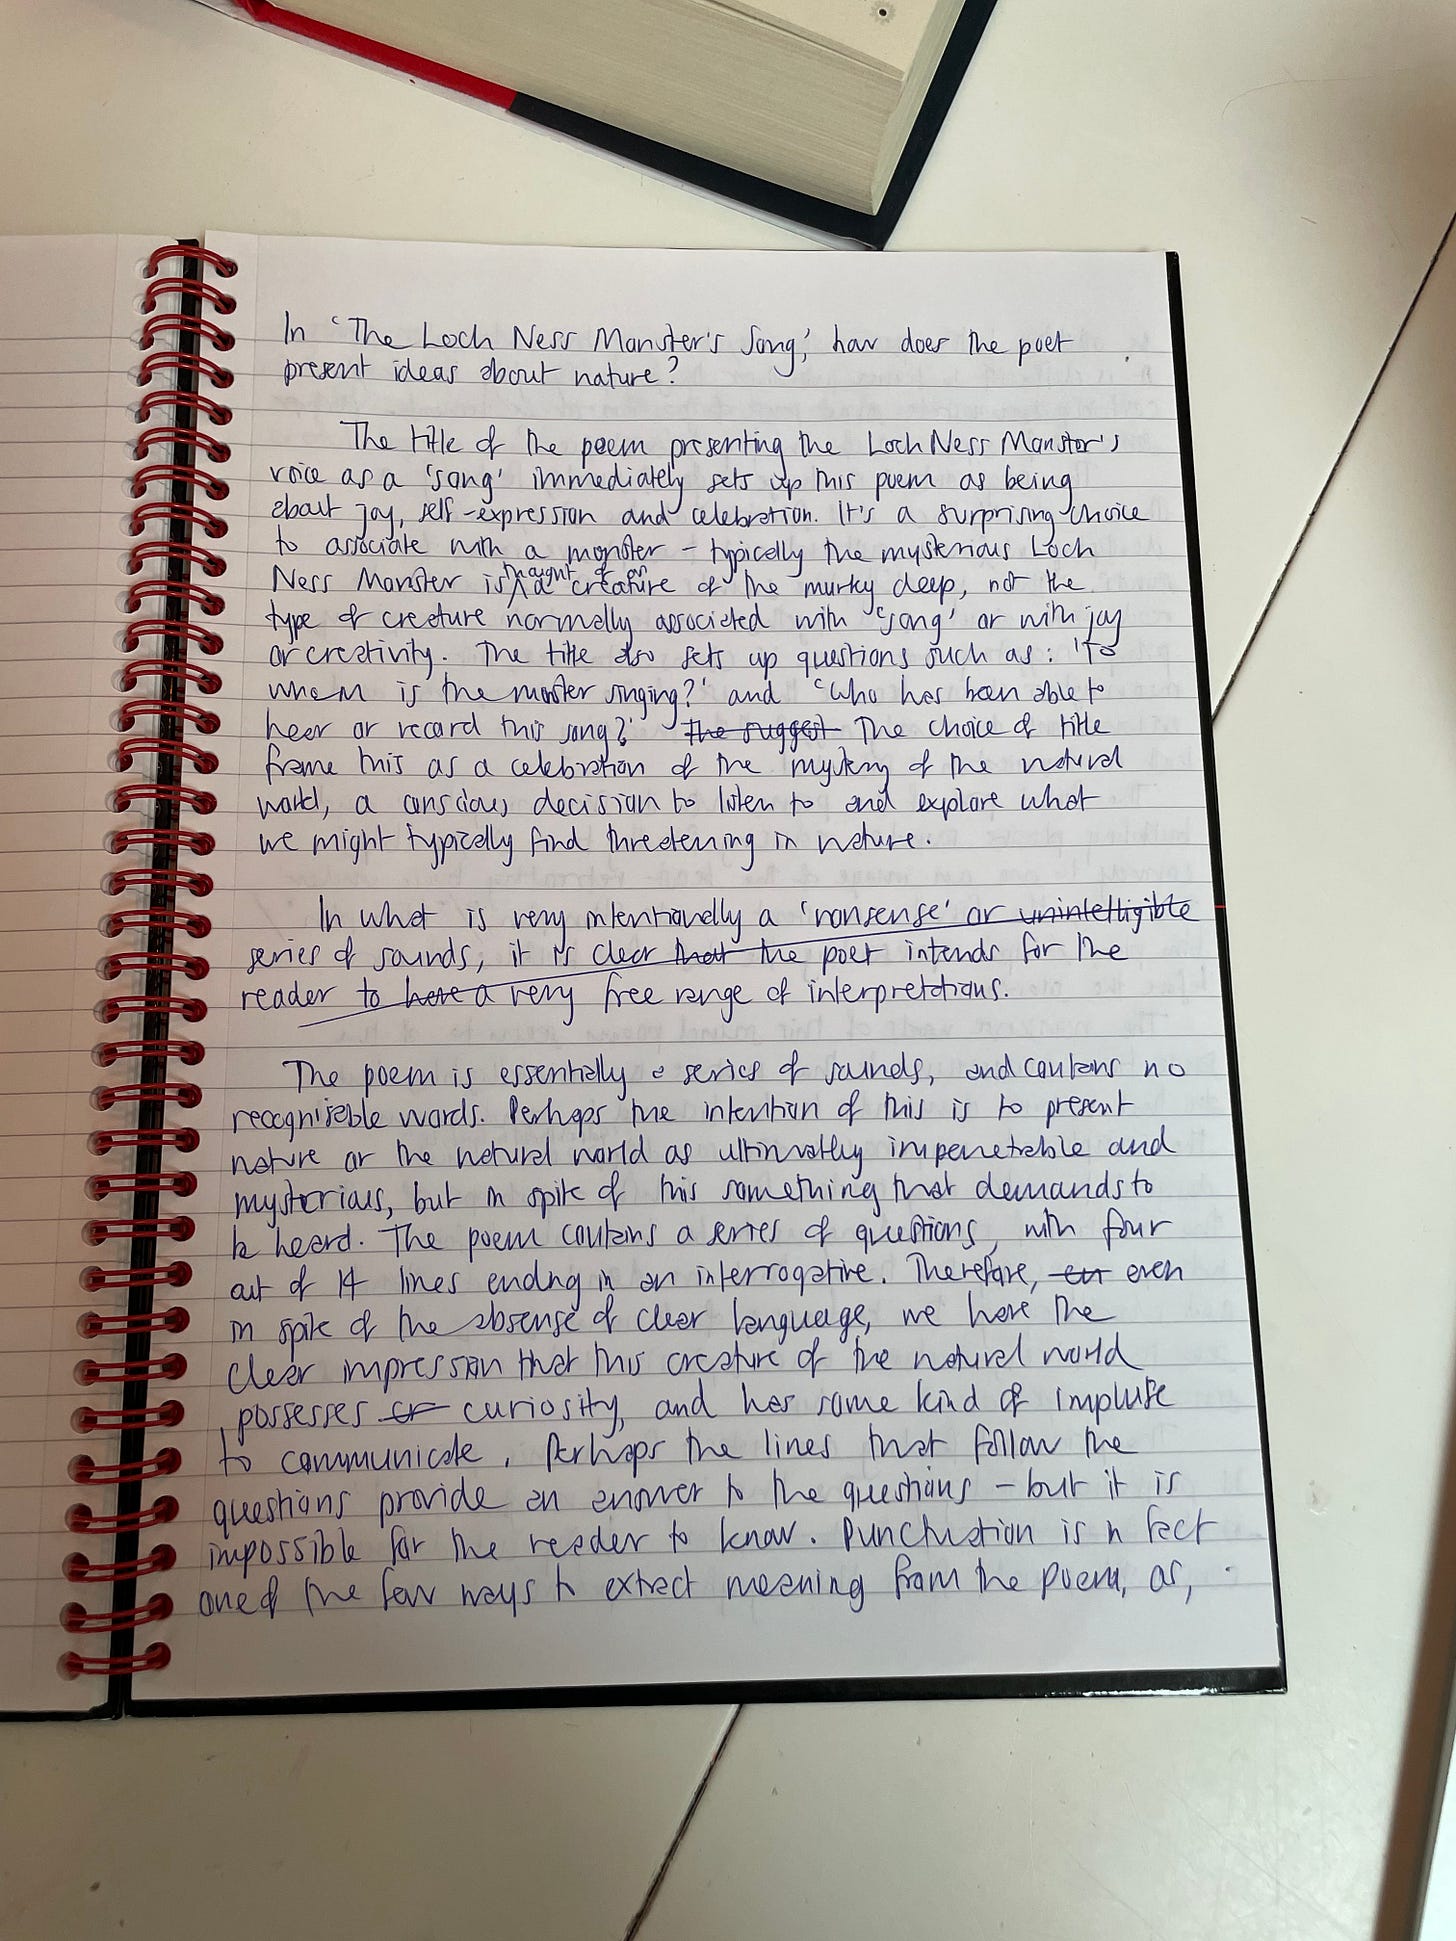 In 'The Loch Ness Monster's Song,' how does the poet
present ideas about nature?
The title of the poem presenting the Loch Ness Monster's
voice as a 'song' immediately sets up this poem as being
about joy, self-expression and celebration. It's a surprising choice
to associate with a monster - typically the mysterious Loch
Ness Monster is thought of as a creature of the murky deep, not the
type of creature normally associated with 'song' or with joy
or creativity. The title also sets up questions such as: 'To
whom is the monster singing?' and 'Who has been able to
hear or record this song?' The suggest The choice of title
frame this as a celebration of the mystery of the natural
world, a conscious decision to listen to and explore what
we might typically find threatening in nature.
In what is very intentionally a 'nonsense' or unintelligible
series of sounds, it is clear that the poet intends for the
reader to have a very free range of interpretations.
The poem is essentially a series of sounds, and contains no
recognisable words. Perhaps the intention of this is to present
nature or the natural world as ultimately impenetrable and
mysterious, but in spite of this something that demands to
be heard. The poem contains a series of questions, with four
out of 14 lines ending in an interrogative. Therefore, even
in spite of the absense of clear language, we have the
clear impression that this creature of the natural world
possesses curiosity, and has some kind of implulse
to communicate. Perhaps the lines that follow the
questions provide an answer to the questions - but it is
impossible for the reader to know. Punctuation is in fact
one of the few ways to extract meaning from the poem, as,